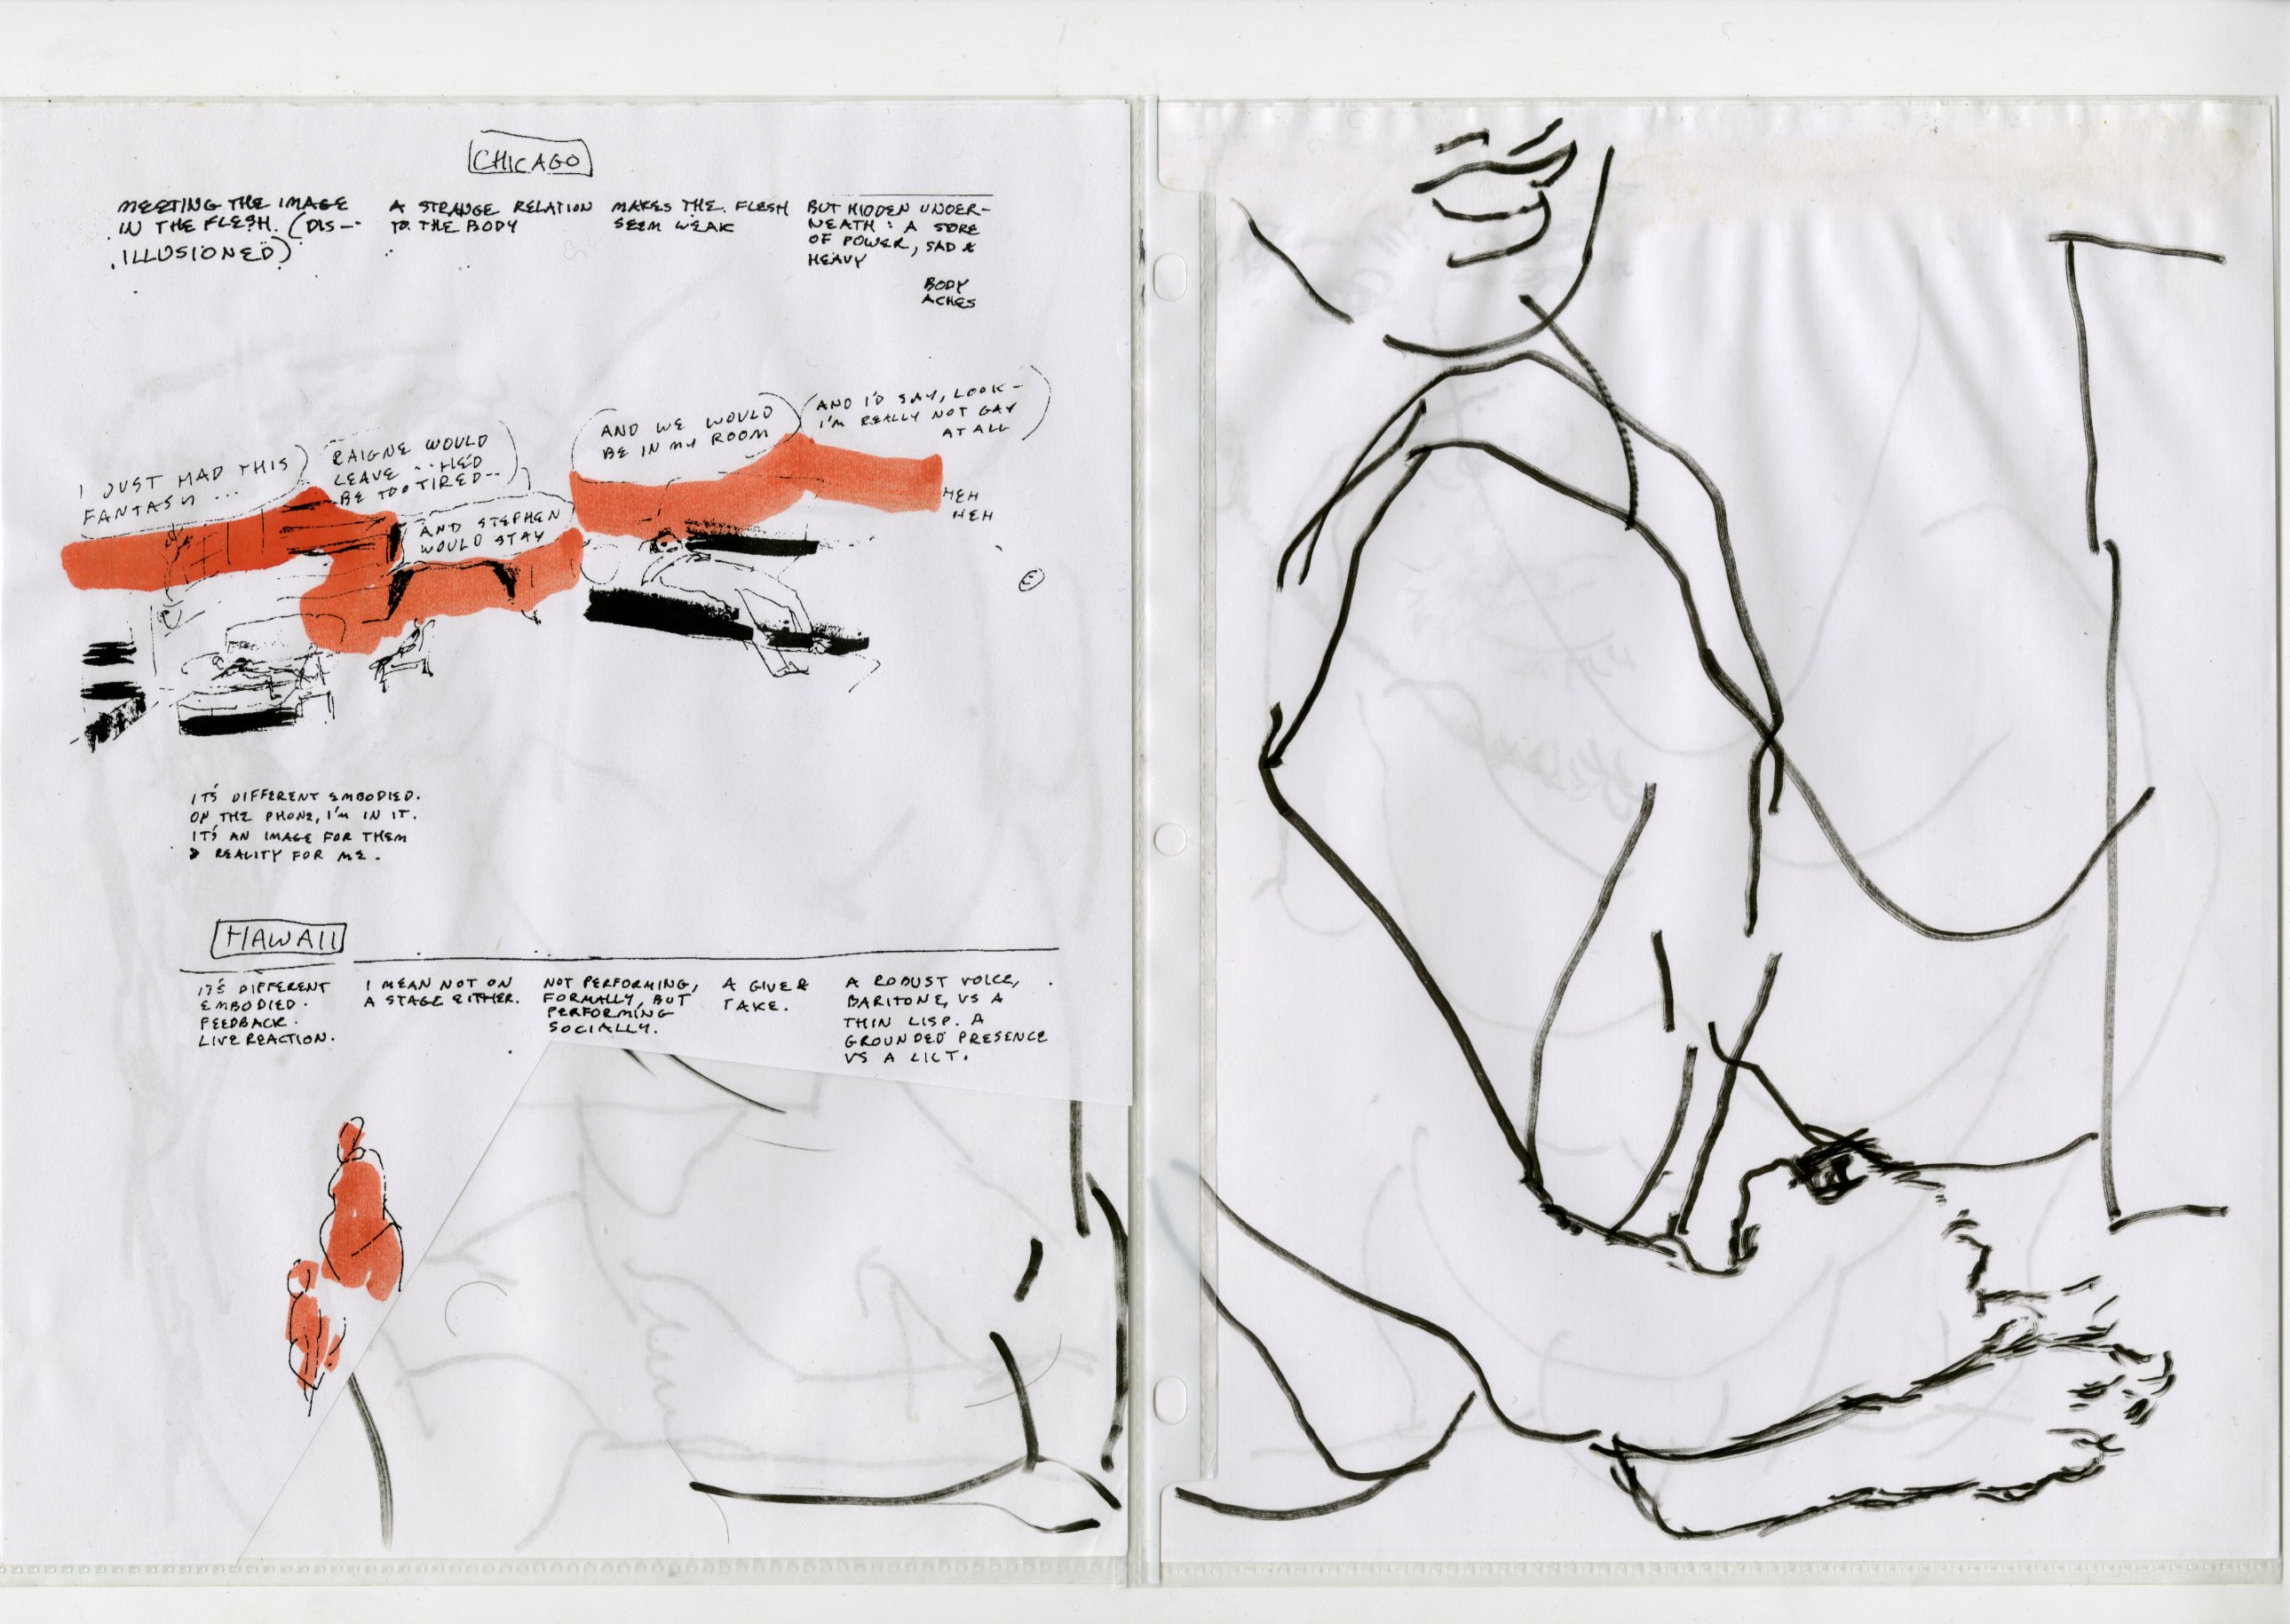 CHICAGO
MEETING THE IMAGE
IN THE FLESH. (DIS--
ILLUSIONED)
A STRANGE RELATION
TO THE BODY
MAKES THE FLESH
SEEM WEAK
BUT HIDDEN UNDER-
NEATH: A STORE
OF POWER, SAD &
HEAVY
BODY
ACHES
I JUST HAD THIS
FANTASY ...
RAIGNE WOULD
LEAVE -- HE'D
BE TOO TIRED--
AND STEPHEN
WOULD STAY
AND WE WOULD
BE IN MY ROOM
AND I'D SAY, LOOK-
I'M REALLY NOT GAY
AT ALL
HEH
HEH
IT'S DIFFERENT EMBODIED.
ON THE PHONE, I'M IN IT.
IT'S AN IMAGE FOR THEM
& REALITY FOR ME.
HAWAII
IT'S DIFFERENT
EMBODIED.
FEEDBACK.
LIVE REACTION.
I MEAN NOT ON
A STAGE EITHER.
NOT PERFORMING,
FORMALLY, BUT
PERFORMING
SOCIALLY.
A GIVE &
TAKE.
A ROBUST VOICE,
BARITONE, VS A
THIN LISP. A
GROUNDED PRESENCE
VS A LILT.